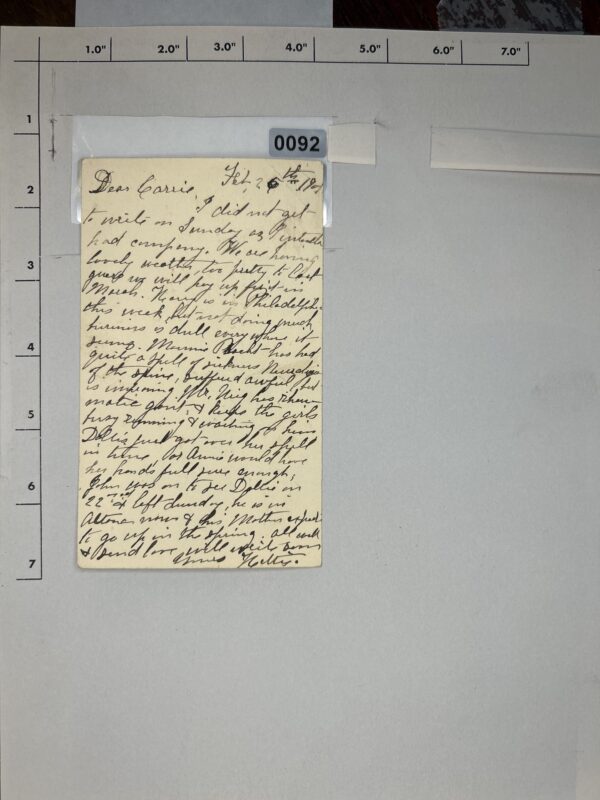 1.0" 2.0" 3.0" 4.0" 5.0" 6.0" 7.0"
1
2
3
4
5
6
7
0092
Dear Carrie, Feb, 26th
I did not get
to write on Sunday as I intended
had company. We are having
lovely weather, too pretty to last
guess we will pay up for it in
March. Harry is in Philadelphia
this week, but not doing much
business is dull everywhere it
seems. Mamie has had
quite a spell of sickness Neuralgia
of the spine, suffered awful, but
is improving. Mr. has rheu-
matic gout, & keeps the girls
busy running & waiting on him
Dollie just got over her spell
in time, or Annie would have
her hands full sure enough,
John was on to see Dollie on
22nd & left Sunday, he is in
Altoona now & his Mother expects
to go up in the spring. all well
& send love, will write soon
Yours Hettie.